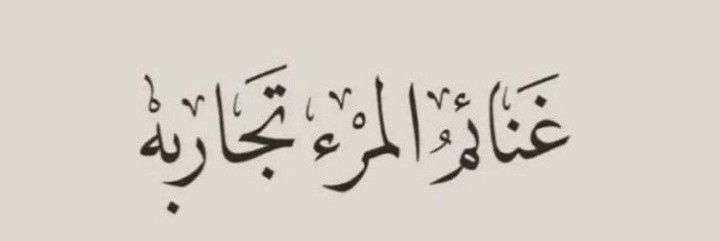 غَنَائمُ المرْء تَجَاربهْ